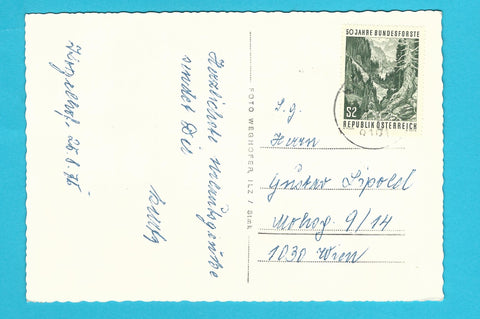 Herzlichste Urlaubsgrüße
sendet Dir
FOTO WEGHOFER, ILZ / Stmk.
50 JAHRE BUNDESFORSTE
S2
REPUBLIK ÖSTERREICH
S.g.
Herrn
Gustav Lipold
Mohsg. 9/14
1030 Wien